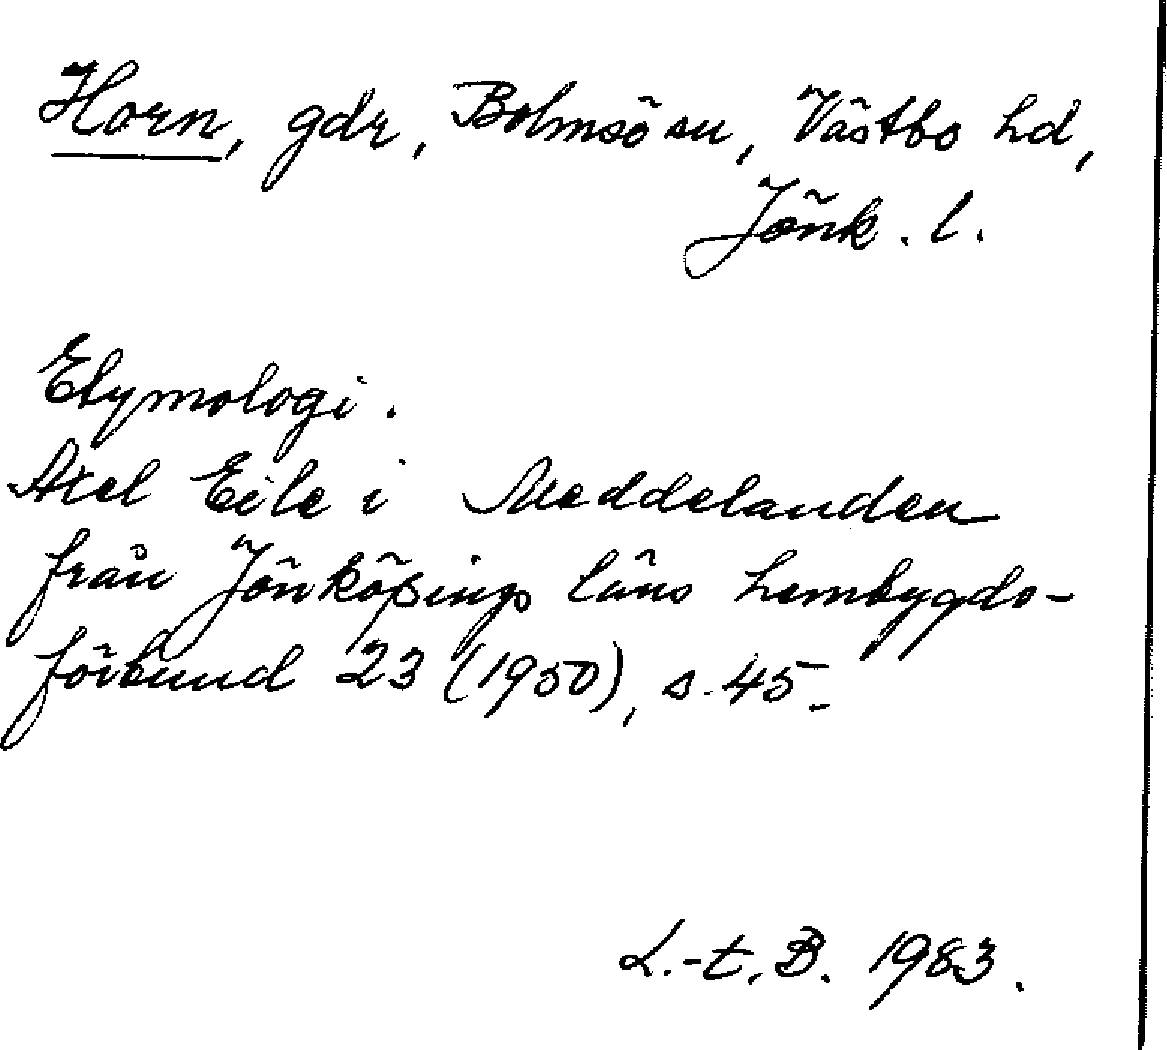 Horn, gdr, Bolmsö sn, Västbo hd,
Jönk. l.
Etymologi.
Axel Eile i Meddelanden
från Jönköpings läns hembygds-
förbund 23 (1950), s. 45.
L.-t. B. 1983.